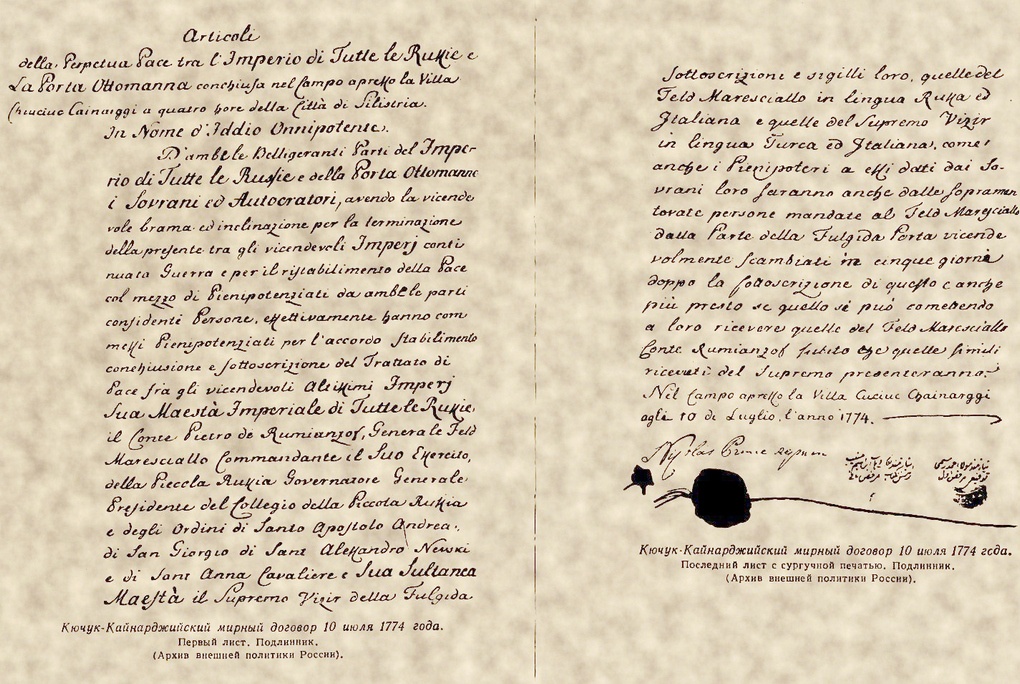 Articoli
della Perpetua Pace tra l'Imperio di Tutte le Russie e
La Porta Ottomanna conchiusa nel Campo apresso la Villa
Chiuciuc Cainarggi a quatro hore della Città di Silistria.
In Nome d'Iddio Onnipotente.
D'ambe le Belligeranti Parti del Impe-
rio di Tutte le Russie e della Porta Ottomanna
i Sovrani ed Autocratori, avendo la vicende
vole brama ed inclinazione per la terminazione
della presente tra gli vicendevoli Imperj conti
nuata Guerra e per il ristabilimento della Pace
col mezzo di Pienipotenziati da ambe le parti
confidenti Persone, effettivamente hanno com
messi Pienipotenziati per l'accordo stabilimento
conchiusione e sottoscrizione del Trattato di
Pace fra gli vicendevoli Altissimi Imperj
Sua Maestà Imperiale di Tutte le Russie,
il Conte Pietro de Rumianzof, Generale Feld
Maresciallo Commandante il Suo Esercito,
della Piccola Russia Governatore Generale
Presidente del Collegio della Piccola Russia
e degli Ordini di Santo Apostolo Andrea,
di San Giorgio di Sant Alessandro Newski
e di Sant Anna Cavaliere e Sua Sultanea
Maestà il Supremo Vizir della Fulgida
Кючук-Кайнарджийский мирный договор 10 июля 1774 года.
Первый лист. Подлинник.
(Архив внешней политики России).
sottoscrizioni e sigilli loro, quelle del
Feld Maresciallo in lingua Russa ed
Italiana e quelle del Supremo Vizir
in lingua Turca ed Italiana, come
anche i Pienipoteri a essi dati dai So-
vrani loro saranno anche dalle sopramen
tovate persone mandate al Feld Maresciallo
dalla Parte della Fulgida Porta vicende
volmente scambiati in cinque giorni
doppo la sottoscrizione di questo e anche
più presto se quello se può comettendo
a loro ricevere quelle del Feld Maresciallo
Conte Rumianzof subito che quelle simili
ricevuti del Supremo presenteranno.
Nel Campo apresso la Villa Cuciuc Chainarggi
agli 10 di Luglio, l'anno 1774.
Кючук-Кайнарджийский мирный договор 10 июля 1774 года.
Последний лист с сургучной печатью. Подлинник.
(Архив внешней политики России).